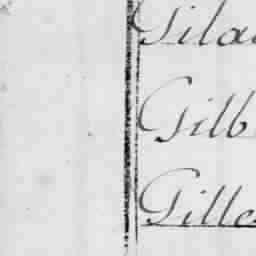 Gila
Gilb
Gille